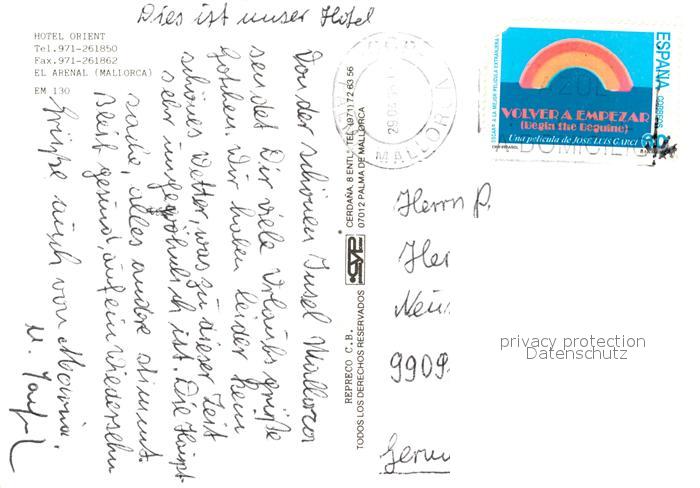 Dies ist unser Hotel
HOTEL ORIENT
Tel.971-261850
Fax.971-261862
EL ARENAL (MALLORCA)
EM 130
Von der schönen Insel Mallorca
sendet Dir viele Urlaubsgrüße
Gotchen. Wir haben leider kein
schönes Wetter, was zu dieser Zeit
sehr ungewöhnlich ist. Die Haupt-
sache, alles andre stimmt.
Bleib gesund, auf ein Wiedersehn
Grüße auch von Maria.
REPRECO C.B.
TODOS LOS DERECHOS RESERVADOS
CERDAÑA, 8 ENTL.; TEL. (971) 72 63 56
07012 PALMA DE MALLORCA
MALLORCA
ESPAÑA
CORREOS
OSCAR A LA MEJOR PELICULA EXTRANJERA
VOLVER A EMPEZAR
(Begin the Beguine)
Una película de JOSE LUIS GARCI
A DOMICILIO
Herrn P.
Her
Neu
9909
Germ
privacy protection
Datenschutz